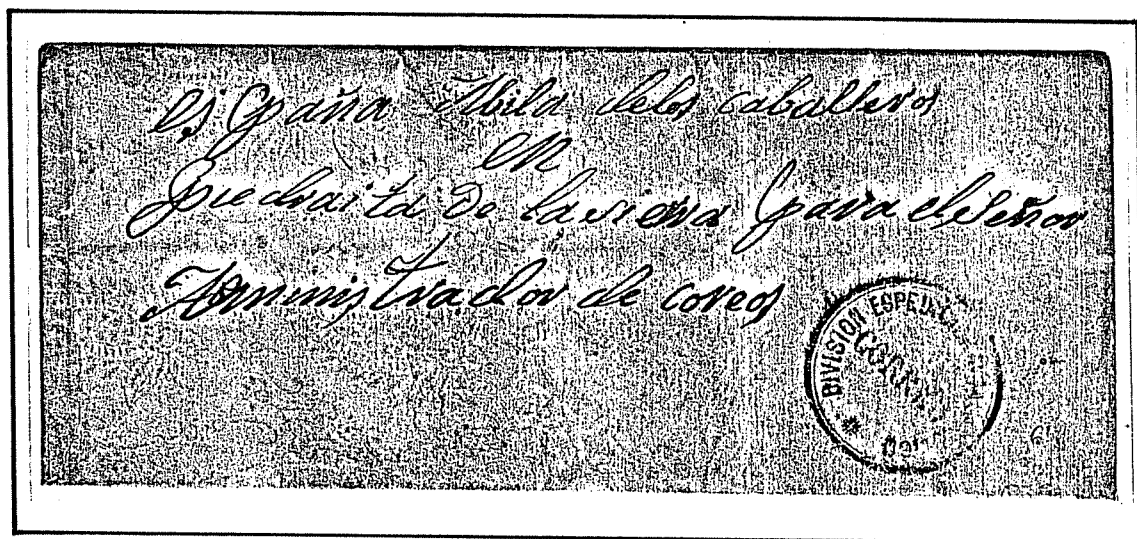 esspaña Abila delos caballeros
en
piedraita De lasierra para elSeñor
Aministrador de coreos
DIVISION
CORREO